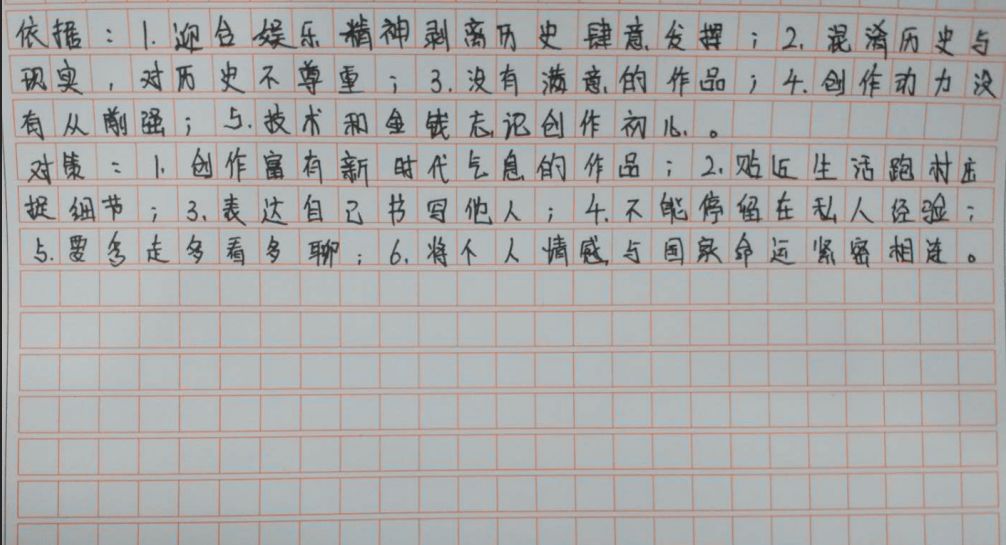 依据：1.迎合娱乐精神剥离历史肆意发挥；2.混淆历史与
现实，对历史不尊重；3.没有满意的作品；4.创作动力没
有从前强；5.技术和金钱忘记创作初心。
对策：1.创作富有新时代气息的作品；2.贴近生活跑村庄
捉细节；3.表达自己书写他人；4.不能停留在私人经验；
5.要多走多看多聊；6.将个人情感与国家命运紧密相连。